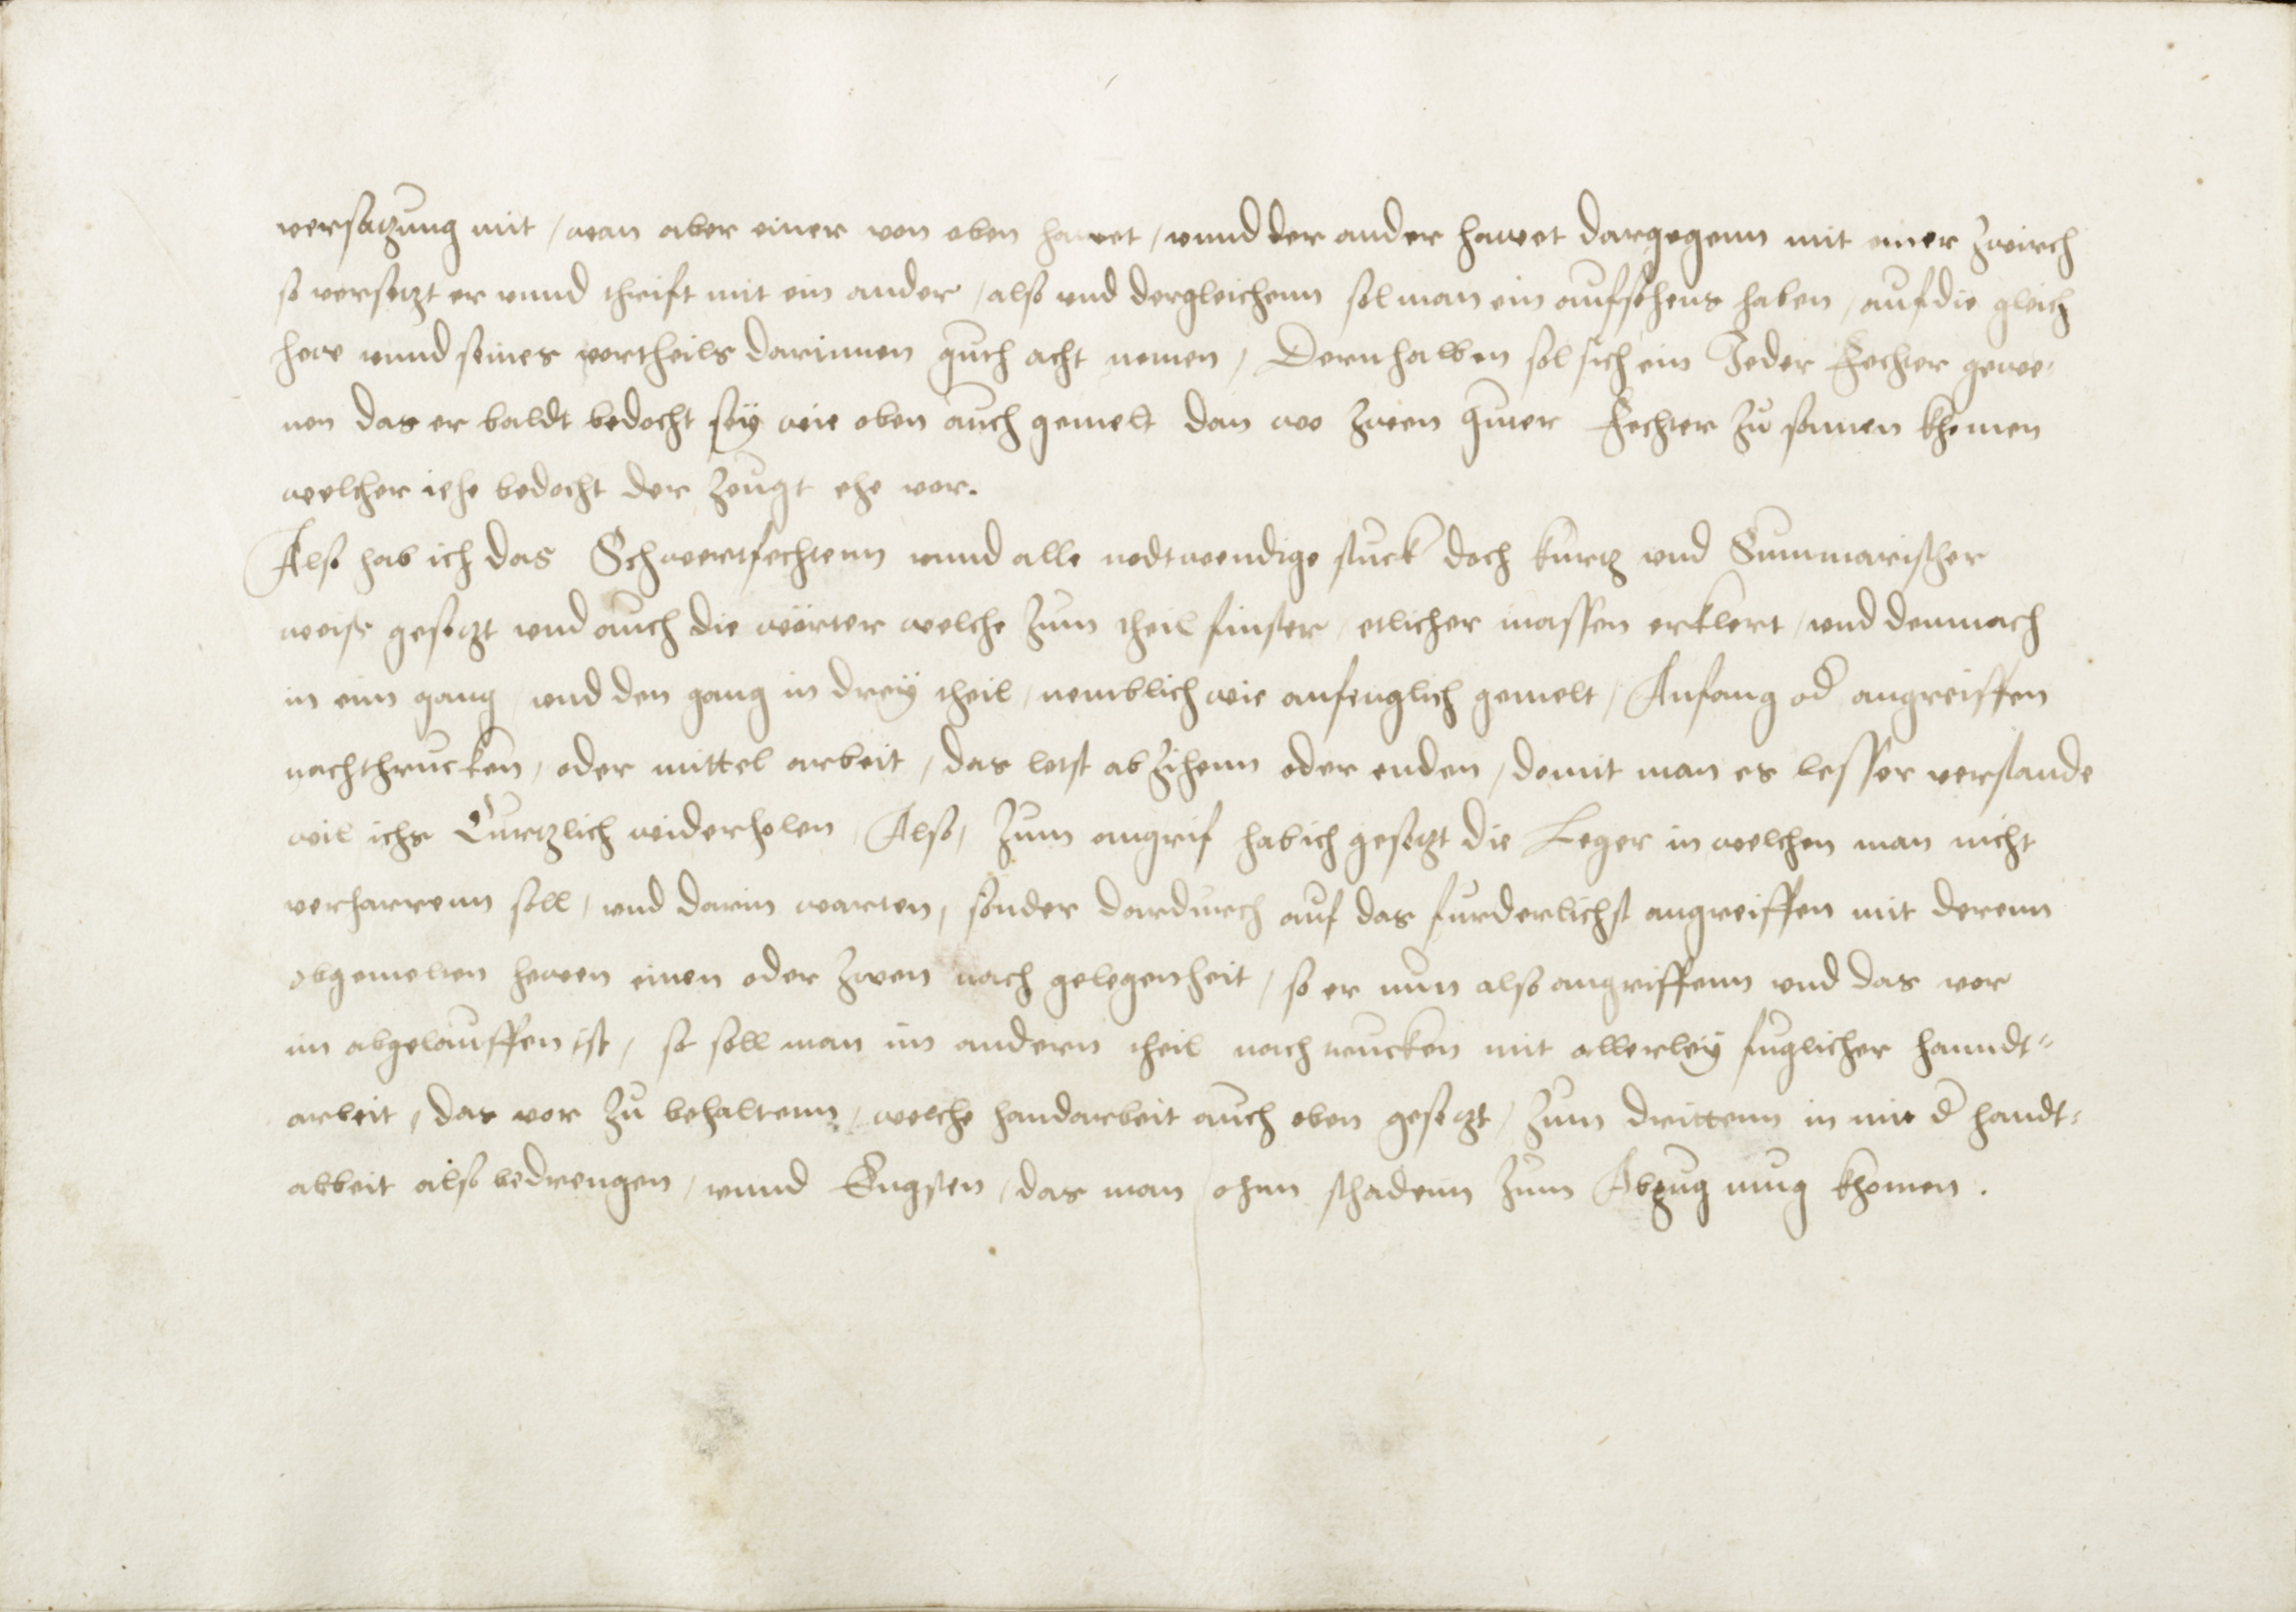 versatzung mit / wan aber einer von oben hawet / vnnd der ander hawet dargegenn mit einer zwirch
so versetzt er vnnd thrift mit ein ander / also vnd dergleichenn sol man ein aufsehens haben / auf die gleich
hew vnnd seines vortheils darinnen guth acht nemen / Dernhalben sol sich ein Jeder Fechter gewe-
nen das er baldt bedocht sey wie oben auch gemelt dan wo zwen guter Fechter zu samen khomen
welcher iehe bedocht der zeugt ehe vor.
Also hab ich das Schwertfechtenn vnnd alle nodtwendige stuck doch kurtz vnd Summarischer
weiss gesetzt vnd auch die wörter welche zum theil finster / etlicher massen erklert / vnd demnach
in einn gang / vnd den gang in drey theil / nemblich wie anfenglich gemelt / Anfang od angreiffen
nachthrucken / oder mittel arbeit / das letst abzihenn oder enden / domit man es besser verstande
wil ichs Curtzlich widerholen / Also / zum angrif hab ich gesetzt die Leger in welchen man nicht
verharrenn soll / vnd darin warten / sonder dardurch auf das furderlichst angreiffen mit derenn
obgemelten hewen einen oder zwen nach gelegenheit / so er nun also angriffenn vnd das vor
im abgelauffen ist / so soll man im andern theil nach trucken mit allerley fuglicher hanndt=
arbeit / das vor zu behaltenn / welche handarbeit auch oben gesetzt / zum drittenn in mit d handt=
abbeit also bedrengen / vnnd Engsten / das man ohnn schadenn zum Abzug mug khomen.